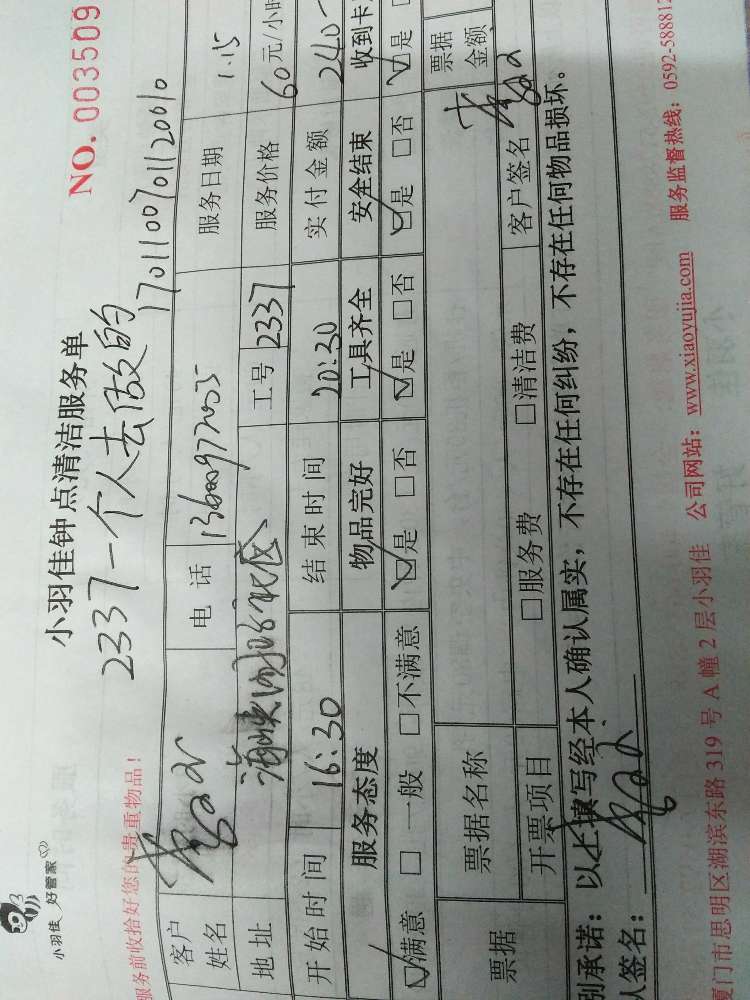 小羽佳 好管家
小羽佳钟点清洁服务单
NO. 003509
2337一个人去做的
17011007011200610
服务前收拾好您的贵重物品！
客户姓名 电话 服务日期 1.15
地址 工号 2337 服务价格 60元/小时
开始时间 16:30 结束时间 20:30 实付金额 240
服务态度 物品完好 工具齐全 安全结束 收到卡
☑满意 □一般 □不满意 ☑是 □否 ☑是 □否 ☑是 □否 ☑是
票据 票据名称 票据金额
开票项目 □服务费 □清洁费 客户签名
别承诺：以上填写经本人确认属实，不存在任何纠纷，不存在任何物品损坏。
人签名：
厦门市思明区湖滨东路319号A幢2层小羽佳 公司网站：www.xiaoyujia.com 服务监督热线：0592-588812